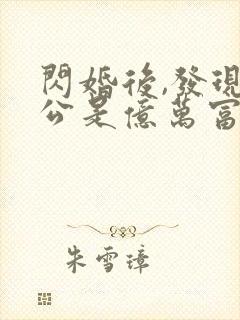 閃婚後,發現
公是億萬富
朱雪璋